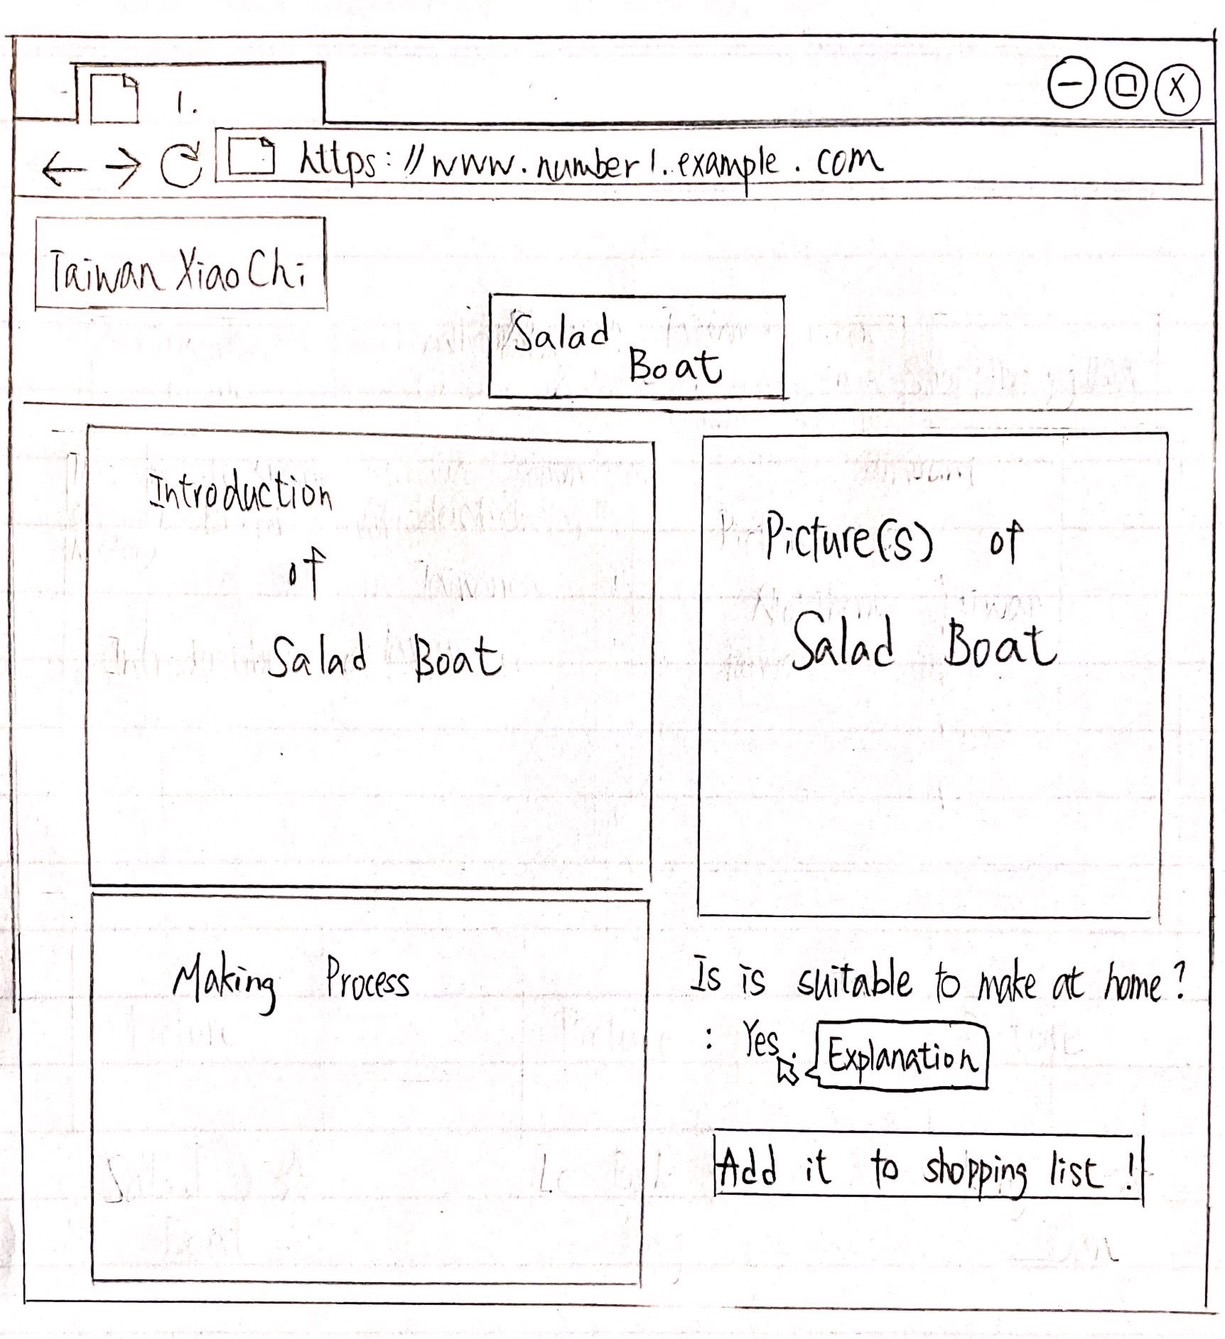 1.
https://www.number1.example.com
Taiwan XiaoChi
Salad
Boat
Introduction
of
Salad Boat
Picture(s) of
Salad Boat
Making Process
Is is suitable to make at home?
: Yes
Explanation
Add it to shopping list!